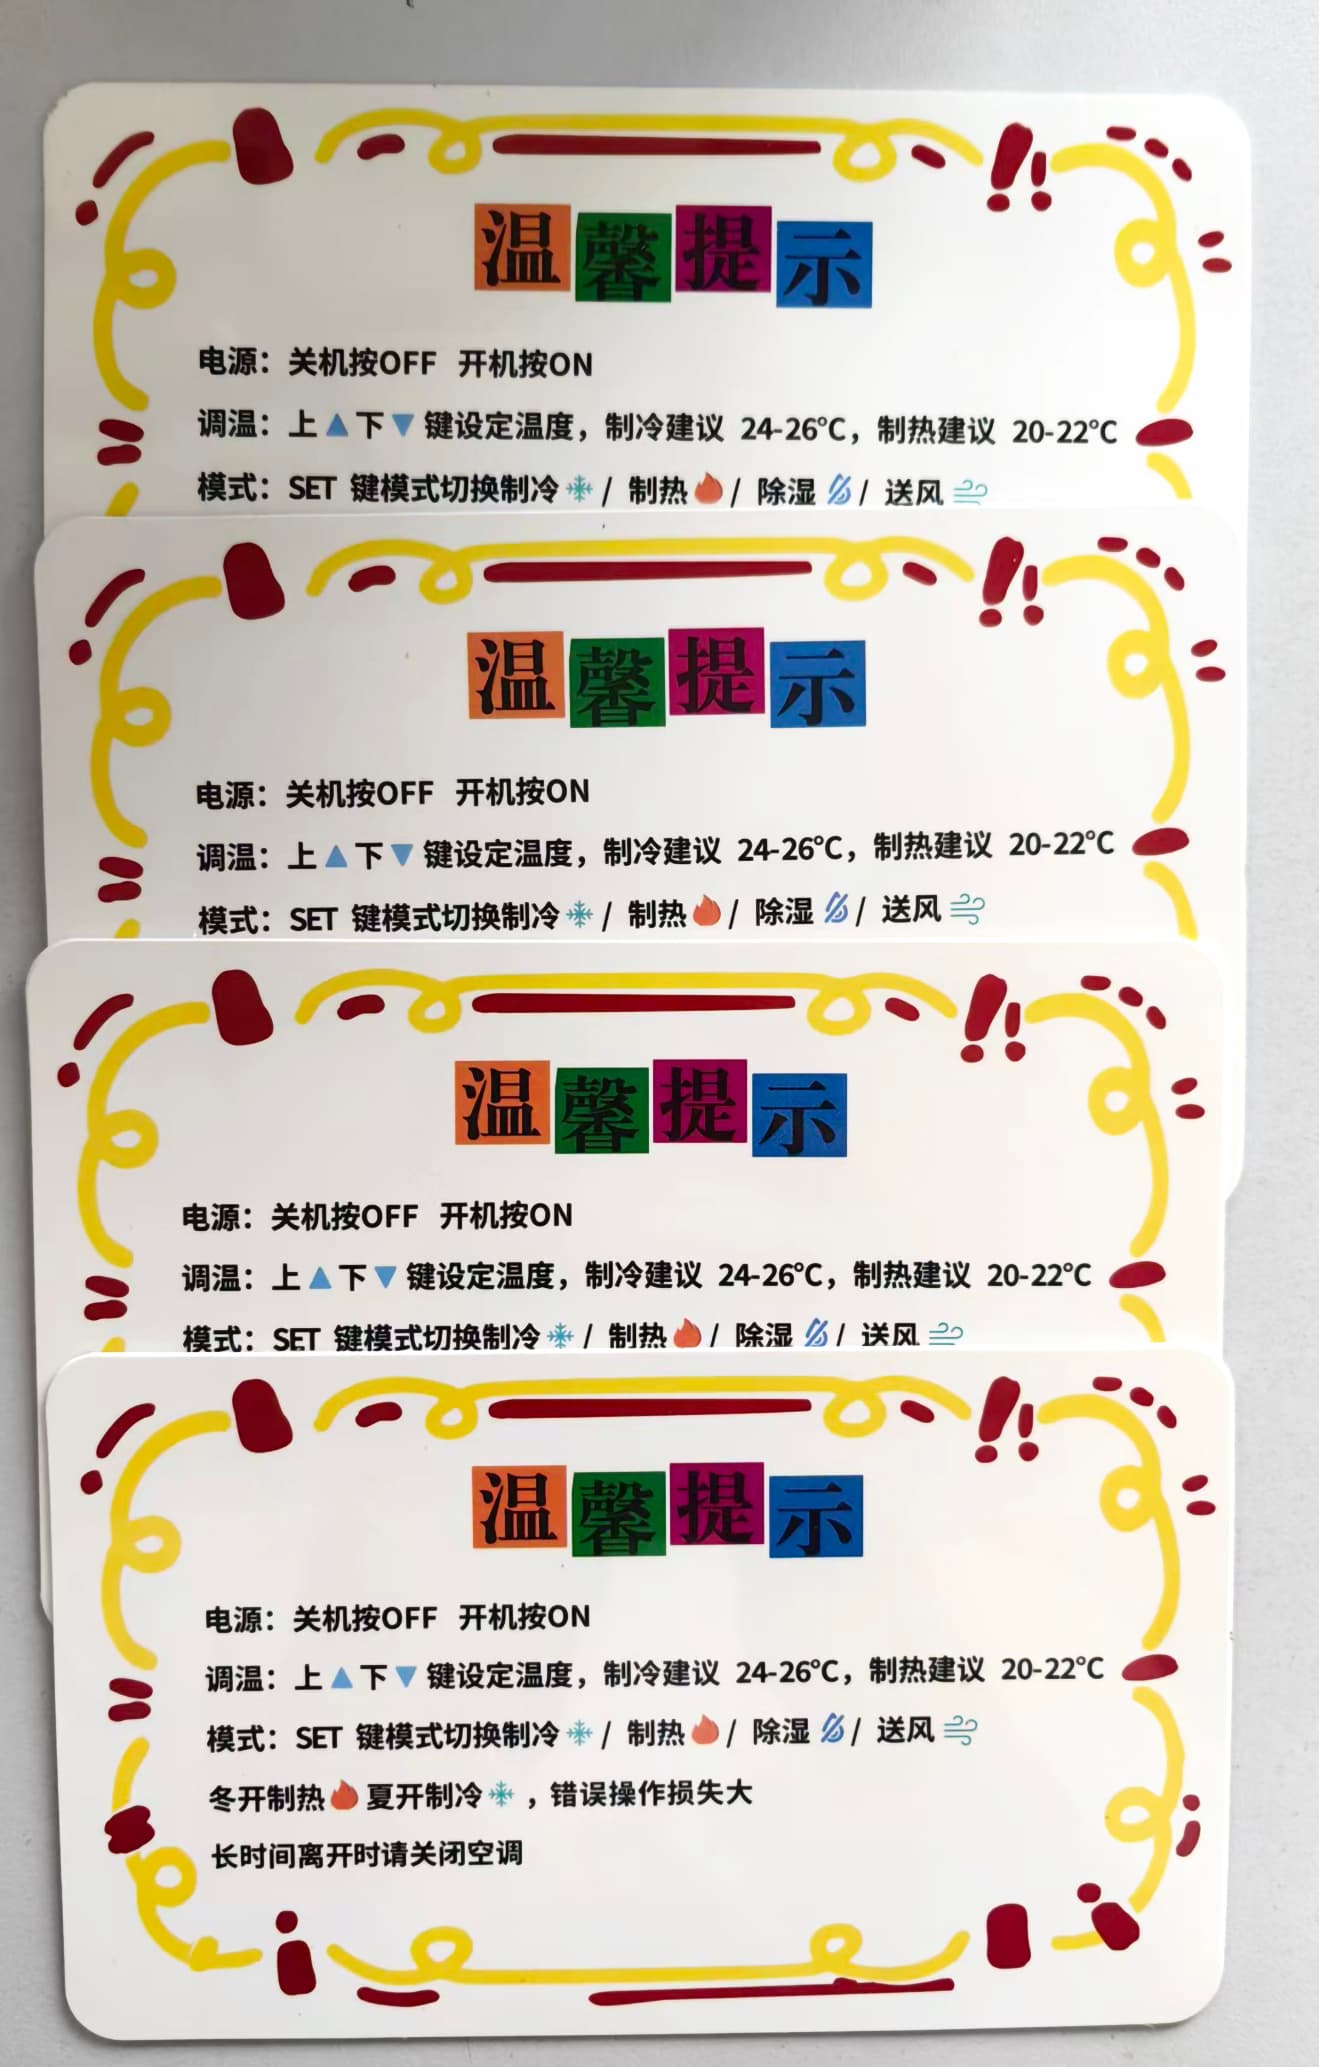 温馨提示
电源：关机按OFF 开机按ON
调温：上▲下▼键设定温度，制冷建议 24-26℃，制热建议 20-22℃
模式：SET 键模式切换制冷❄/ 制热🔥/ 除湿/ 送风
温馨提示
电源：关机按OFF 开机按ON
调温：上▲下▼键设定温度，制冷建议 24-26℃，制热建议 20-22℃
模式：SET 键模式切换制冷❄/ 制热🔥/ 除湿/ 送风
温馨提示
电源：关机按OFF 开机按ON
调温：上▲下▼键设定温度，制冷建议 24-26℃，制热建议 20-22℃
模式：SET 键模式切换制冷❄/ 制热🔥/ 除湿/ 送风
温馨提示
电源：关机按OFF 开机按ON
调温：上▲下▼键设定温度，制冷建议 24-26℃，制热建议 20-22℃
模式：SET 键模式切换制冷❄/ 制热🔥/ 除湿/ 送风
冬开制热🔥夏开制冷❄，错误操作损失大
长时间离开时请关闭空调